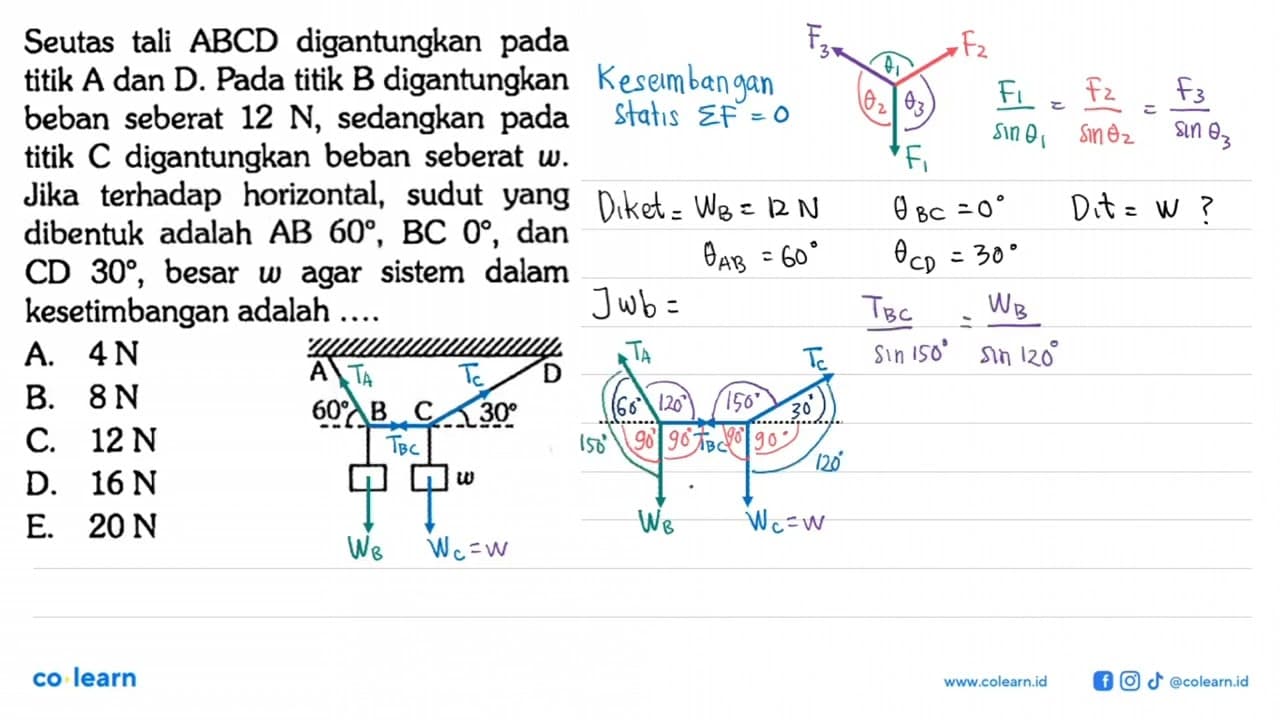 Seutas tali ABCD digantungkan pada
titik A dan D. Pada titik B digantungkan
beban seberat 12 N, sedangkan pada
titik C digantungkan beban seberat w.
Jika terhadap horizontal, sudut yang
dibentuk adalah AB 60°, BC 0°, dan
CD 30°, besar w agar sistem dalam
kesetimbangan adalah ....
A. 4 N
B. 8 N
C. 12 N
D. 16 N
E. 20 N
A TA TC D
60° B C 30°
TBC
w
WB WC = W
Keseimbangan
Statis ΣF = 0
F3 F2
θ1
θ2 θ3
F1
F1/sin θ1 = F2/sin θ2 = F3/sin θ3
Diket = WB = 12 N θBC = 0° Dit = W ?
θAB = 60° θCD = 30°
Jwb =
TBC/sin 150° = WB/sin 120°
TA TC
60° 120° 150° 30°
150° 90° 90° TBC 90° 90°
120°
WB WC = W
co·learn
www.colearn.id @colearn.id